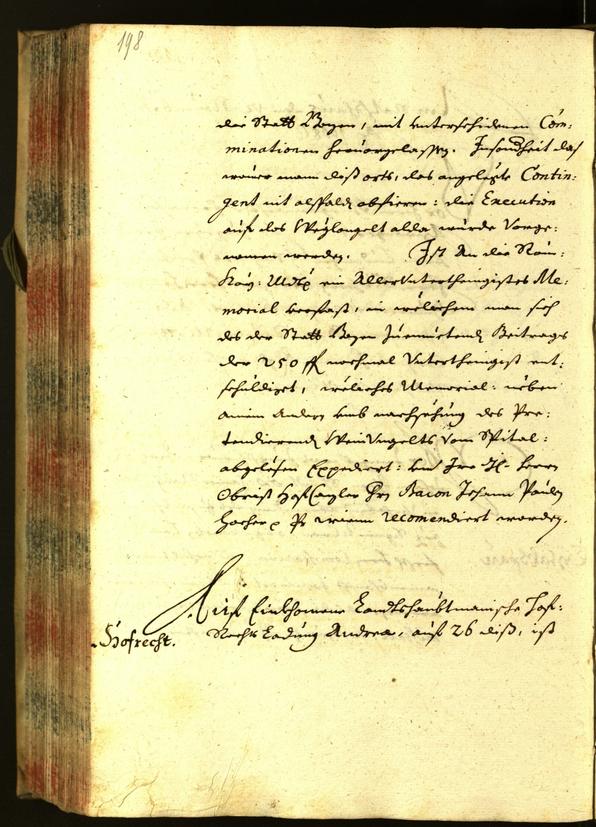 198
die Statt Bozen, mit unterschidenen Com:
minationen heruorgelassen. Insonderheit das
wouer mann diß orts, das angelegte Contin:
gent nit alßpald abfieren: die Execution
auf das Weglongelt alda wurde Vorge:
nomen werden. Ist An die Röm:
Kay: Mtt: ein Allerunterthenigistes Me:
morial verfast, in welichem man sich
des der Statt Bozen Zuemuetend Beitrags
der 250 ff nochmal Unterthenigist ent:
schuldiget, weliches Memorial: neben
ainem Andern umb nachsehung des Pre:
tendierend WeinUngelts Vom Spital:
abgelesen Expediert: und Iro H: Herrn
Obrist HofCanzler Baron Johann Paulen
Hocher wienn recomendiert worden.
Auf Einkhomene Landtshaubtmanische Hof:
Rechts Ladung Andreae, auf 26 diß, ist
Hofrecht.